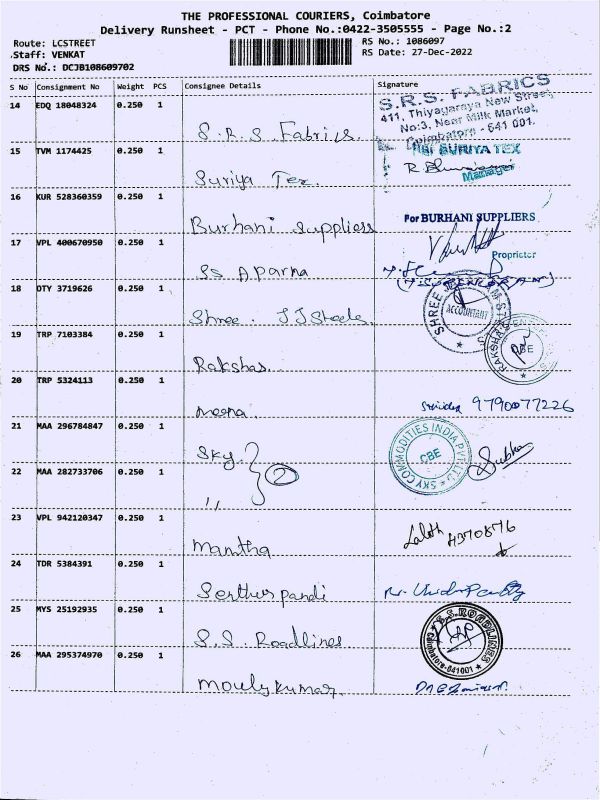 THE PROFESSIONAL COURIERS, Coimbatore
Delivery Runsheet - PCT - Phone No.:0422-3505555 - Page No.:2
Route: LCSTREET RS No.: 1086097
Staff: VENKAT RS Date: 27-Dec-2022
DRS No.: DCJB108609702
S No Consignment No Weight PCS Consignee Details Signature
14 EDQ 18048324 0.250 1 S.R.S Fabrics
S.R.S. FABRICS
411, Thiyagaraya New Street,
No:3, Near Milk Market,
Coimbatore - 641 001.
15 TVM 1174425 0.250 1 Suriya Tex.
SURIYA TEX
Manager
16 KUR 528360359 0.250 1 Burhani Suppliers
For BURHANI SUPPLIERS
Proprietor
17 VPL 400670950 0.250 1 SS Aparna
18 OTY 3719626 0.250 1 Shree. JJ Steels.
SHREE
ACCOUNTANT
19 TRP 7103384 0.250 1 Rakshas.
RAKSHA
CBE
20 TRP 5324113 0.250 1 Meena.
9790077226
21 MAA 296784847 0.250 1 Sky. 2
SKY COMMODITIES INDIA PVT LTD
CBE
Subha
22 MAA 282733706 0.250 1 ,,
23 VPL 942120347 0.250 1 Mamtha
24 TDR 5384391 0.250 1 Senthur pandi
25 MYS 25192935 0.250 1 S.S. Roadlines
S.S.ROADLINES
Coimbatore-641001
26 MAA 295374970 0.250 1 Moulykumar.